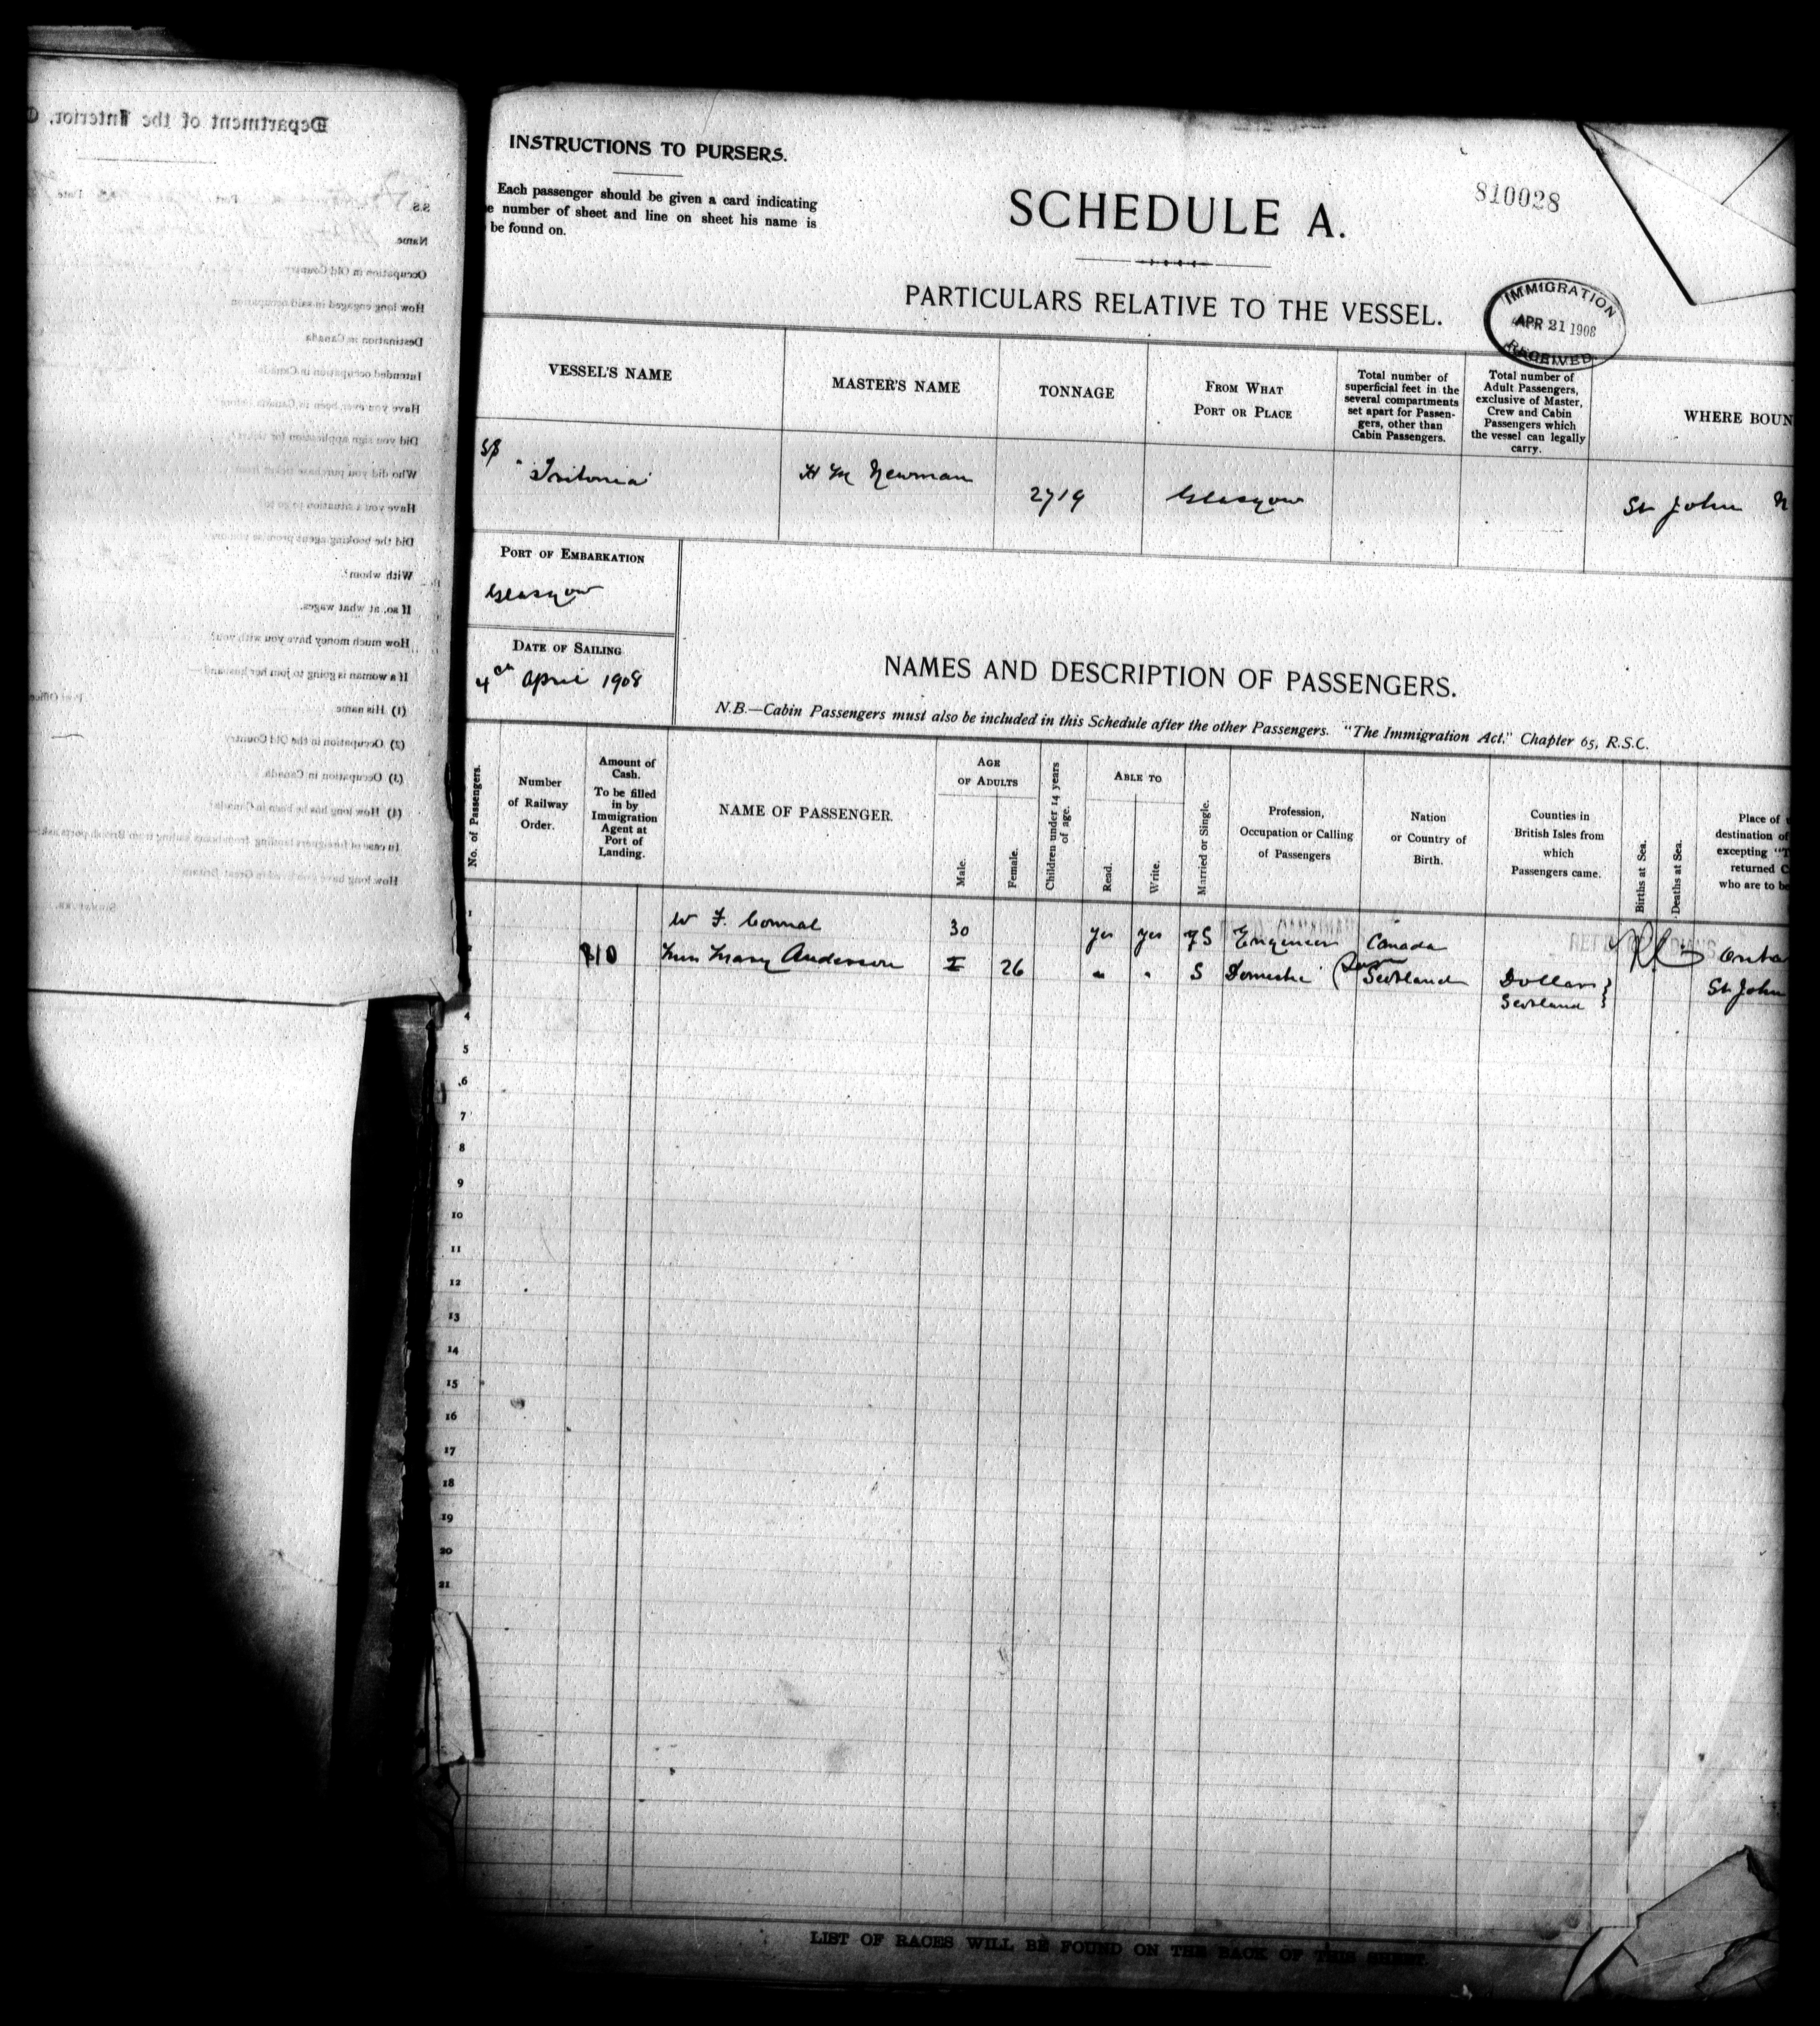 Department of the Interior,
S.S. Port Date
Name
Occupation in Old Country
How long engaged in said occupation
Destination in Canada
Intended occupation in Canada
Have you ever been in Canada before
Did you sign application for ticket?
Who did you purchase ticket from
Have you a situation to go to?
Did the booking agent promise you one?
With whom?
If so, at what wages.
How much money have you with you?
If a woman is going to join her husband:—
(1) His name
(2) Occupation in the Old Country
(3) Occupation in Canada
(4) How long has he been in Canada?
How long have you lived in Great Britain?
INSTRUCTIONS TO PURSERS.
Each passenger should be given a card indicating
e number of sheet and line on sheet his name is
be found on.
SCHEDULE A.
810028
PARTICULARS RELATIVE TO THE VESSEL.
IMMIGRATION
APR 21 1908
RECEIVED.
VESSEL'S NAME
MASTER'S NAME
TONNAGE
FROM WHAT
PORT OR PLACE
Total number of
superficial feet in the
several compartments
set apart for Passen-
gers, other than
Cabin Passengers.
Total number of
Adult Passengers,
exclusive of Master,
Crew and Cabin
Passengers which
the vessel can legally
carry.
WHERE BOUN
SS "Tritonia" H M Newman 2719 Glasgow St John N
PORT OF EMBARKATION
Glasgow
DATE OF SAILING
4th April 1908
NAMES AND DESCRIPTION OF PASSENGERS.
N.B.—Cabin Passengers must also be included in this Schedule after the other Passengers. "The Immigration Act," Chapter 65, R.S.C.
No. of Passengers.
Number
of Railway
Order.
Amount of
Cash.
To be filled
in by
Immigration
Agent at
Port of
Landing.
NAME OF PASSENGER.
AGE
OF ADULTS
Male.
Female.
Children under 14 years
of age.
ABLE TO
Read.
Write.
Married or Single.
Profession,
Occupation or Calling
of Passengers
Nation
or Country of
Birth.
Counties in
British Isles from
which
Passengers came.
Births at Sea.
Deaths at Sea.
Place of
destination of
excepting "T
returned C
who are to be
1 W F. Connal 30 yes yes S Engineer Canada Onta
2 $10 Miss Mary Anderson 26 " " S Domestic Scotland Dollar } St John
Scotland }
4
5
6
7
8
9
10
11
12
13
14
15
16
17
18
19
20
21
LIST OF RACES WILL BE FOUND ON THE BACK OF THIS SHEET.